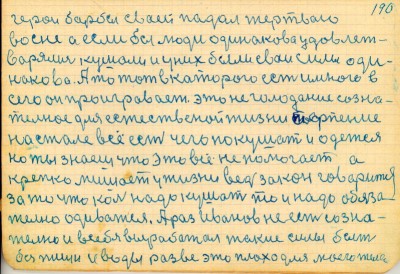 190
герои борбы сваей падал жертваю
восне а если бы люди одинакова удовлет-
варяли кушали и у них были сваи силы оди-
накова. А то тот в каторого есть много в
сего он проигравает. это не голодание созна-
телное для естественой жизни терпение
на стале всё есть чего покушат и одется
но ты знаеш что это всё не помогает а
крепко мишает у жизни вед закон говарит
за то что кол надо кушат то и надо обяза-
телно одиватся. А раз иванов не ест созна-
телно и в себя выработал такие силы быт
без пищи и воды разве это плохо для моего тела